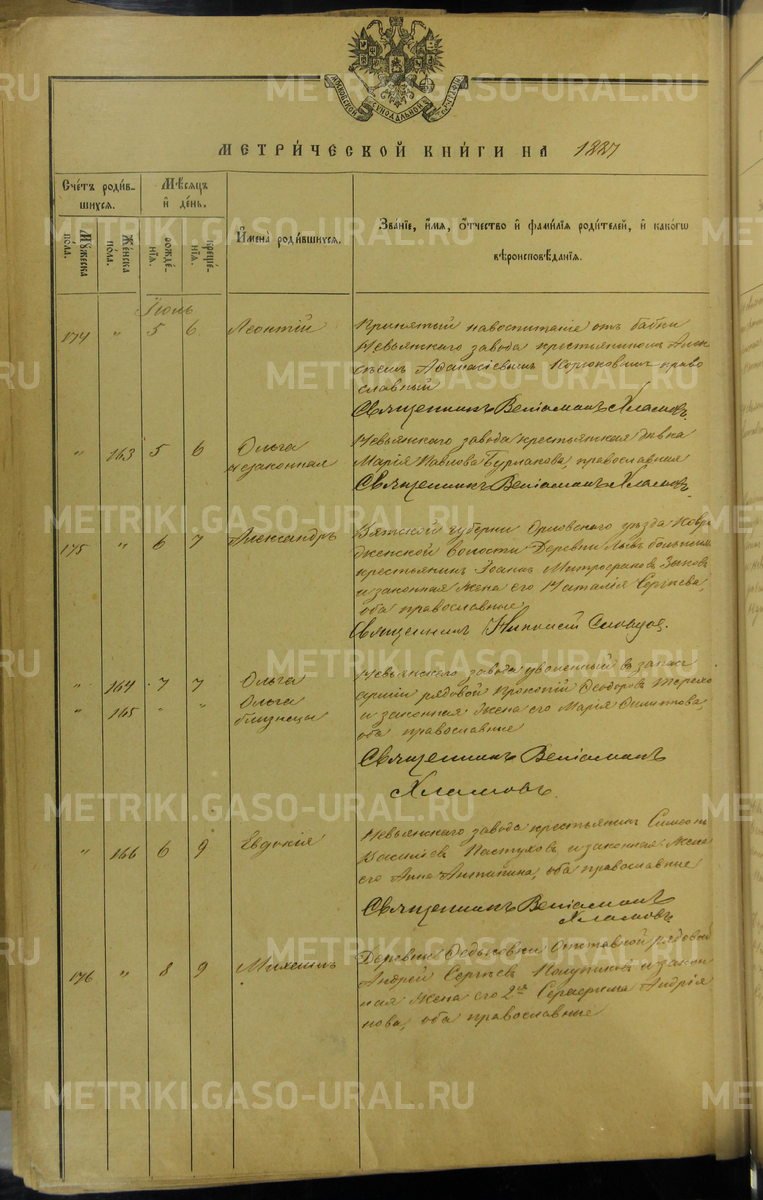 МОСКОВСКОЙ СѴНОДАЛЬНОЙ ТИПОГРАФІИ
МЕТРИ́ЧЕСКОЙ КНИ́ГИ НА 1887
Сче́тъ роди́в-
шихся.
Мѣ́сяцъ
и́ де́нь.
И҆мена̀ роди́вшихся.
Зва́нїе, и҆́мя, ѻ҆́тчество и҆ фами́лїа роди́телей, и҆ какѡ́гѡ
вѣроисповѣ́данїѧ.
Мꙋ́жеска
по́ла.
Же́нска
по́ла.
рожде́-
нїѧ.
креще́-
нїѧ.
Іюнь
174 " 5 6 Леонтій
Принятый на воспитаніе отъ бабки
Невьянскаго завода крестьяниномъ Алек
сѣемъ Аѳанасіевымъ Корюковымъ право
славный
Священникъ Веніаминъ Хламовъ
" 163 5 6 Ольга
незаконная
Невьянскаго завода крестьянская дѣвка
Марія Павлова Бурлакова, православная
Священникъ Веніаминъ Хламовъ
175 " 6 7 Александръ
Вятской губерніи Орловскаго уѣзда
волости деревни
крестьянинъ Іоаннъ Митрофановъ Зыковъ
и законная жена его Наталія Сергѣева,
оба православные
Священникъ
" 164 7 7 Ольга
" 165 " " Ольга
близнецы
Невьянскаго завода уволенный въ запас
арміи рядовой Прокопій Ѳеодоровъ
и законная жена его Марія Филиппова,
оба православные
Священникъ Веніаминъ
Хламовъ
" 166 6 9 Евдокія
Невьянскаго завода крестьянинъ Симеонъ
Василіевъ Пастуховъ и законная жена
его Анна Антипина, оба православные
Священникъ Веніаминъ
Хламовъ
176 " 8 9 Михаилъ
Деревни Ѳедьковки отставной рядовой
Андрей Сергѣевъ и закон
ная жена его 2ая Серафима Андрія
нова, оба православные
METRIKI.GASO-URAL.RU